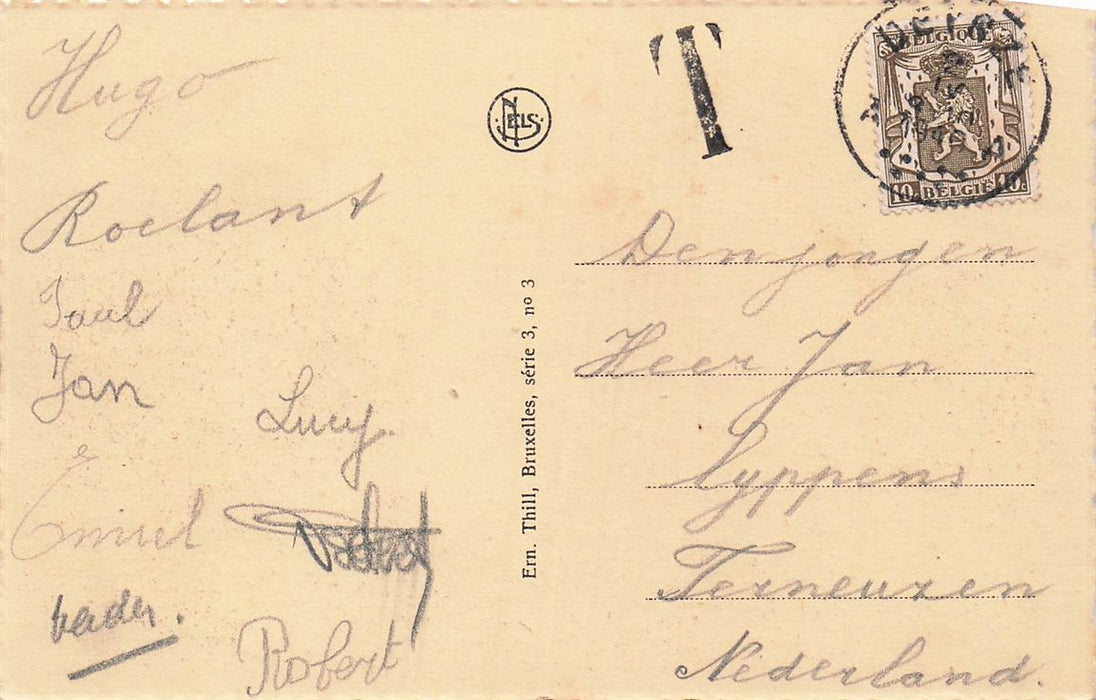 Hugo
Roelant
Paul
Jan
Lucy
Emiel
vader.
Robert
NELS
Ern. Thill, Bruxelles, série 3, nº 3
T
BELGIQUE
10c BELGIË 10c
Den jongen
Heer Jan
Lyppens
Terneuzen
Nederland.